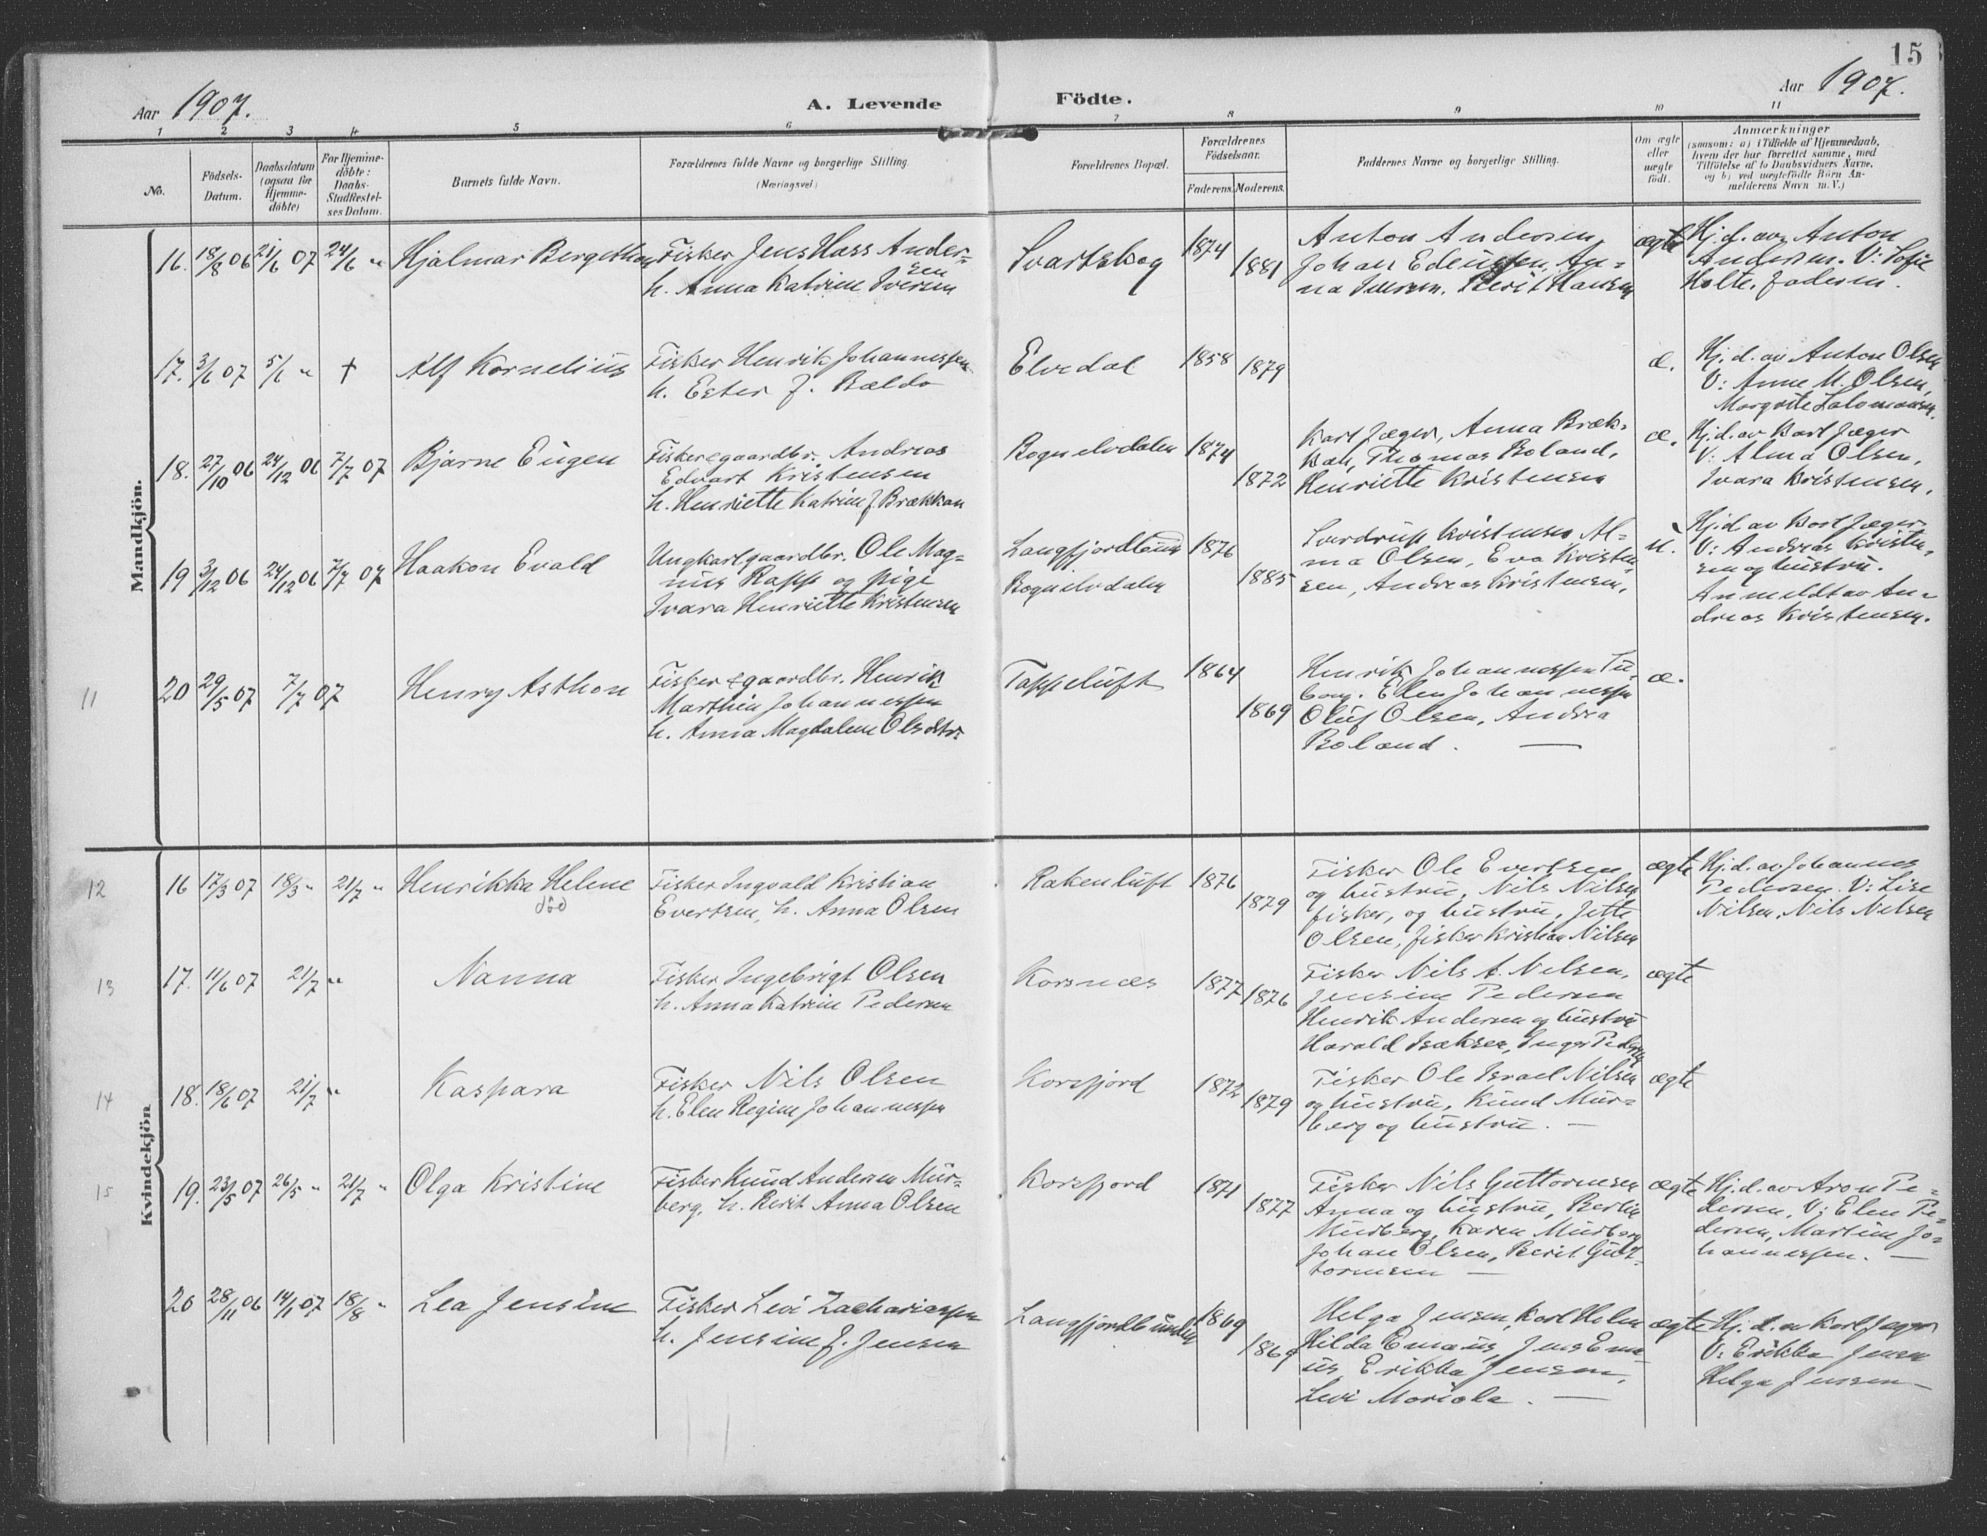 15
Aar 1907.
A. Levende Födte.
Aar 1907.
1 2 3 4 5 6 7 8 9 10 11
No.
Födsels-Datum.
Daabsdatum (ogsaa for Hjemme-döbte)
For Hjemme-döbte: Daabs-Stadfæstel-ses Datum.
Barnets fulde Navn.
Forældrenes fulde Navne og borgerlige Stilling (Næringsvei)
Forældrenes Bopæl.
Forældrenes Födselsaar.
Faderens. Moderens.
Faddernes Navne og borgerlige Stilling.
Om ægte eller uægte födt.
Anmærkninger
(saasom: a) i Tilfælde af Hjemmedaab, hvem der har forrettet samme, med Tilföielse af to Daabsvidners Navne, og b) ved uægtefödte Börn An-melderens Navn m. V.)
Mandkjön.
16. 18/8 06 21/6 07 24/6 " Hjalmar Bergethon
Fisker Jens Hass Ander-
sen
h. Anna Katrine Iversen
Svartskog 1874 1881
Anton Andersen
Johan Edeussen, An-
na Iversen. Berit Hansen
ægte
Hj. d. av Anton
Andersen. V: Sofie
Holte.
17. 3/6 07 5/6 " † Alf Kornelius
Fisker Henrik Johannessen
h. Ester f. Bældo
Elvedal 1858 1879
æ.
Hj. d. av Anton Olsen
V: Anne M. Olsen,
Margrete Salomonsen.
18. 27/10 06 24/12 06 7/7 07 Bjarne Eugen
Fisker gaardbr. Andreas
Edvart Kristensen
h. Henriette Katrine f Brækkan
Bognelvdalen 1874 1872
Karl Jæger, Anna Bræk-
kan, Thomas Boland,
Henriette Kristensen
æ.
Hj. d. av Karl Jæger
V: Alma Olsen,
Ivara Kristensen.
19 3/12 06 24/12 06 7/7 07 Haakon Evald
Ungkarl gaardbr. Ole Mag-
nus Rapp og pige
Ivara Henriette Kristensen
Langfjordbunn
Bognelvdalen
1876 1885
Sverdrup Kristensen Al-
ma Olsen, Eva Kristen-
sen, Andreas Kristensen.
u.
Hj. d. av Karl Jæger
V: Andreas Kristen-
sen og hustru.
Anmeldt av An-
dreas Kristensen.
11
20 29/5 07 7/7 07 Henry Asthon
Fisker gaardbr. Henrik
Marthin Johannessen
h. Anna Magdalene Olsdtr.
Tappeluft 1864 1869
Henrik Johannessen Tu-
borg. Elen Johannessen
Oluf Olsen, Andrea
Boland. —
æ.
Kvindekjön
12
16 17/3 07 18/3 " 21/7 " Henrikka Helene
död
Fisker Ingvald Kristian
Evertsen, h. Anna Olsen
Rakenluft 1876 1879
Fisker Ole Evertsen
og hustru, Nils Nilsen
fisker, og hustru, Jette
Olsen, fisker Kristian Nilsen
ægte
Hj. d. av Johannes
Pedersen. V: Lise
Nilsen, Nils Nilsen
13
17. 11/6 07 21/7 " Nanna
Fisker Ingebrigt Olsen
h. Anna Katrine Pedersen
Korsnæs 1877 1876
Fisker Nils A. Nilsen,
Jensine Pedersen
Henrik Andersen og hustru
Harald Isaksen, Inger Pedersen
ægte
14
18. 18/6 07 21/7 " Kaspara
Fisker Nils Olsen
h. Elen Regine Johannessen
Korsfjord 1872 1879
Fisker Ole Israel Nilsen
og hustru, Knud Mur-
berg og hustru. —
ægte
15
19. 23/5 07 26/5 " 21/7 " Olga Kristine
Fisker Knud Andersen Mur-
berg, h. Berit Anna Olsen
Korsfjord 1871 1877
Fisker Nils Guttormsen
Anna og hustru, Berlin
Murberg, Karen Murberg
Johan Olsen, Berit Gut-
tormsen —
ægte
Hj. d. av Aron Pe-
dersen, V: Elen Pe-
dersen, Martine Jo-
hannessen. —
20 28/11 06 14/1 07 18/8 " Lea Jensine
Fisker Levi Zachariassen
h. Jensine f. Jensen
Langfjordbunden 1869 1869
Helga Jensen, Karl Holm
Hilda Emaus, Jens Ema-
us Erikka Jensen,
Levi Mariala. —
ægte
Hj. d. a Karl Jæger
V: Erikka Jensen
Helga Jensen —